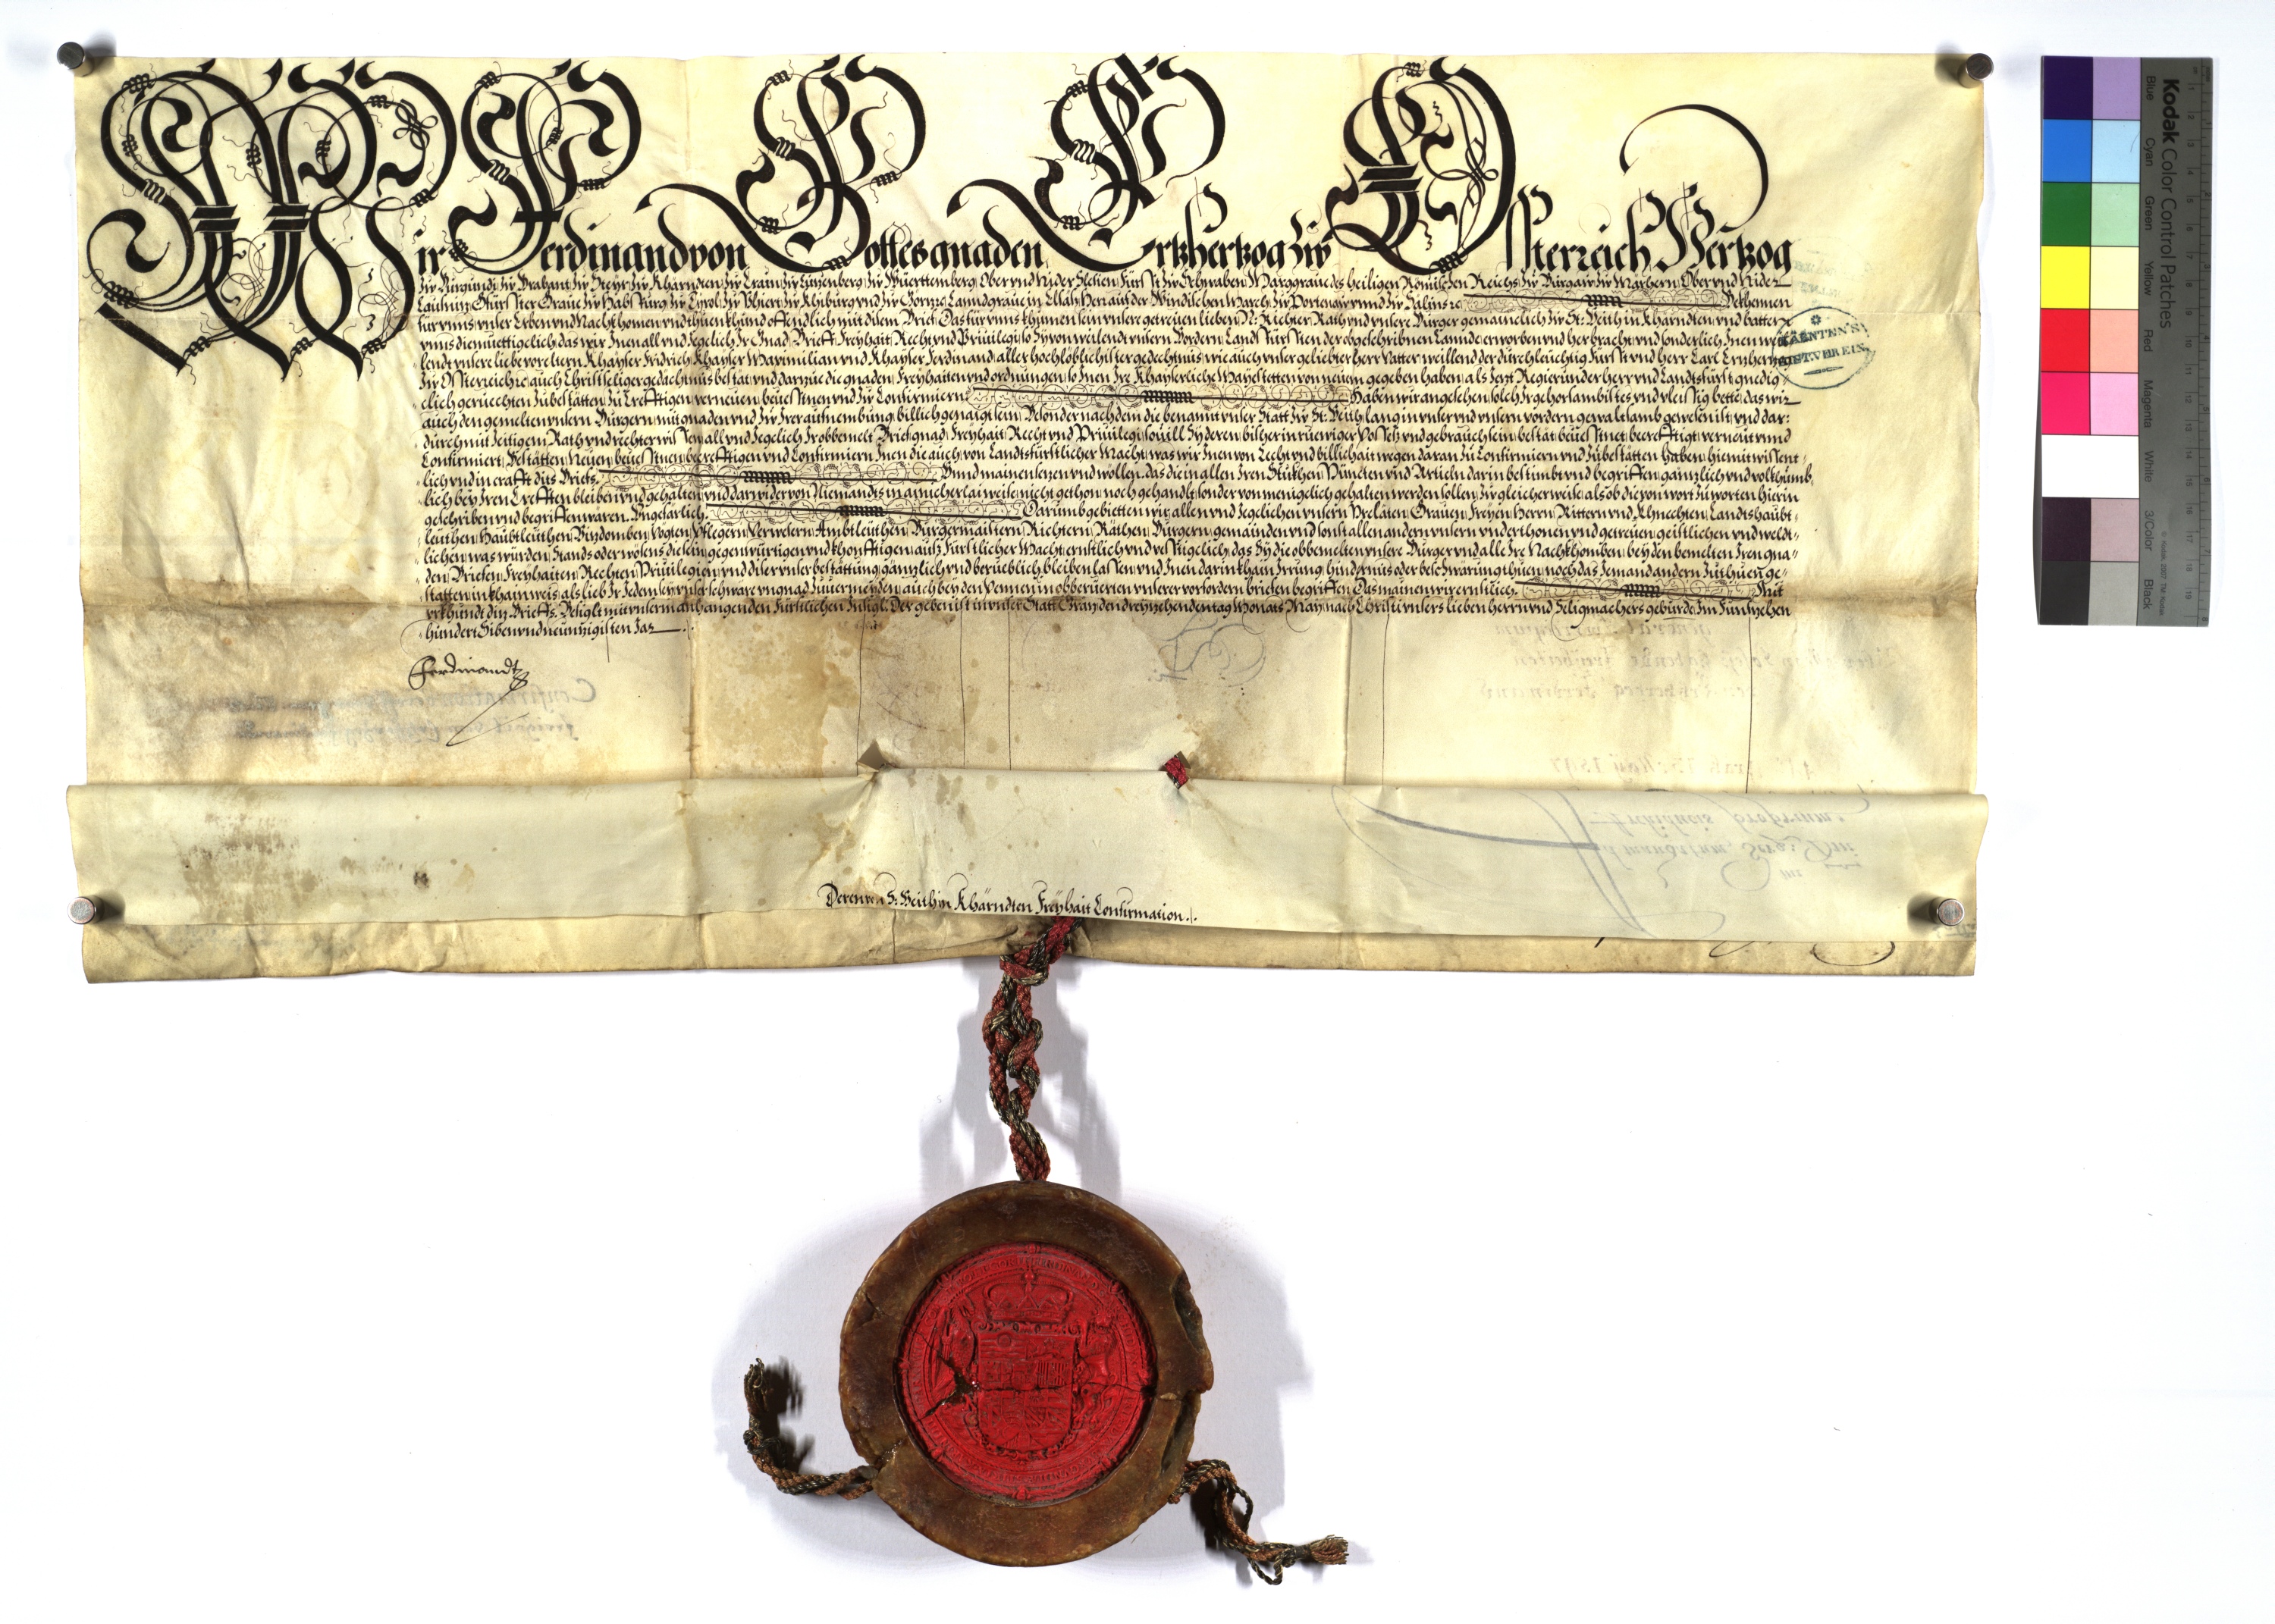 Wir Ferdinand von Gottes gnaden Ertzhertzog zw Össterreich Hertzog
zw Burgundi, zw Brabant, zw Steyr, zw Khärndten, zw Crain, zw Lutzenberg, zw Wuerttemberg, Ober vnd Nider Slesien, Fürsst zw Schwaben, Marggraue des heiligen Römischen Reichs, zw Burgaw, zw Märhern, Ober vnd Nider
Lausnitz, Gfürsster Graue zw Habspurg, zw Tyrol, zw Phiert, zw Khiburg vnd zw Görtz, Lanndgraue in Elsas, Herr auf der Windischen March, zw Portenaw vnnd zw Salins zc. Bekhennen
für vnns, vnser Erben vnd Nachkhomen, vnd thuen khund offendlich mit disem Brief, Das für vnns khumen sein vnsere getreuen lieben N: Richter, Rath vnd vnsere Burger gemainclich zw St: Veith in Khärndten, vnd batten
vnns diemüettigclich, das wir Inen all vnd Jegclich Jr Gnad, Brieff, Freyhait, Recht vnd Priuilegi, so Sy von weilendt vnsern Vordern Landtsfürssten der obgeschribnen Lannde erworben vnd herbracht, vnd sonderlich Inen
lendt vnsere liebe voreltern, Khayser Fridrich, Khayser Maximilian vnd Khayser Ferdinand, aller hochlöblichister gedechtnüs, wie auch vnser geliebter Herr Vatter weillend der durchleuchtig Fürsst vnd Herr Carl Ertzhertzog
zw Össterreich zc. auch Christseliger gedachtnus bestät, vnd darzue die gnaden, Freyhaitten vnd ordnungen, so Inen Ire Khayserliche Mayestetten von neuem gegeben haben, als Jetzt Regierunder herr vnd Landtsfürst gnedig-
clich geruechten zubestätten, zu Crefftigen, verneuen, beuesstnen vnd zu Confirmiern. Haben wir angesehen solch Jr gehorsambist vnd vleissig bette, das wir
auch den gemelten vnsern Burgern mit gnaden vnd zw Irer aufnembung billich genaigt sein, Besonder nachdem die benannt vnser Statt zw St: Veith lang in vnser vnd vnsern vordern gewaltsamb gewesen ist, vnd dar-
durch mit zeitigem Rath vnd rechter wissen, all vnd Jegclich Ir obbemelt Brief, gnad, Freyhait, Recht vnd Priuilegi, souill Sy deren bisher in rüewiger Possess vnd gebrauch sein, bestät, beuesstnet, becrefftigt, verneut vnnd
Confirmiert, Bestätten, Neuen, beuesstnen, becrefftigen vnd Confirmiern Inen die auch, von Landtsfürstlicher Macht, was wir Inen von Recht vnd billichait wegen daran zu Confirmiern vnd zubestätten haben, hiemit wissent-
lich vnd in crafft dits Briefs. Vnnd mainen, setzen vnd wollen, das die in allen Iren Stukhen, Puncten vnd Articln, darin bestimbt vnd begriffen, gäntzlich vnd volkhumb-
lich bey Iren Crefften bleiben vnd gehalten, vnd darwider von Niemandts in ainicherlai weise nicht gethon noch gehandlt, sonder von menigclich gehalten werden sollen, zw gleicher weise, als ob die von wort zu worten hierin
geschriben vnd begriffen wären. Vngefärlich. Darumb gebietten wir allen vnd Jegclichen vnsern Prelaten, Grauen, Freyen, Herrn, Rittern vnd Khnechten, Landtshaubt-
leuthen, Haubtleuthen, Vitzdomben, Vögten, Pflegern, Verwesern, Ambtleuthen, Burgermaistern, Richtern, Räthen, Burgern, gemainden vnd sonst allen andern vnsern vnderthonen vnd getreuen, geistlichen vnd weldt-
lichen, was würden, Stands oder wesens die sein, gegenwürtigen vnd khonfftigen, aus Fürstlicher Macht, ernstlich vnd vestigclich, das Sy die obbemelten vnsere Burger vnd alle Ire Nachkhomben, bey den bemelten Iren gna-
den, Briefen, Freyhaiten, Rechten, Priuilegien, vnd diser vnser bestättung, gänzlich vnd berueblich bleiben lassen, vnd Inen darin khain Irrung, hindernus oder beschwarung thuen, noch das Jemand andern zuthuen ge-
statten, in khain weis, als lieb Ir Jedem sey vnser schware vngnad zuuermeyden, auch bey den Pennen in obberuerten vnserer vorfordern briefen begriffen. Das mainen wir ernstlich. Mit
vrkhundt diz Brieffs. Besiglt mit vnserm anhangenden Fürstlichen Insigl. Der geben ist in vnser Statt Gräz den dreyzehenden tag Monats May, nach Christi vnsers lieben herrn vnd Seligmachers gebürde, Im Fünfzehen
hundert Siben vnd neunzigisten Jar.
KÄRNTEN'S
GESCH. VEREIN
Ferdinandt
Deren von S: Veith in Khärndten Freyhait Confirmation.
Kodak Color Control Patches
Blue Cyan Green Yellow Red Magenta White 3/Color Black